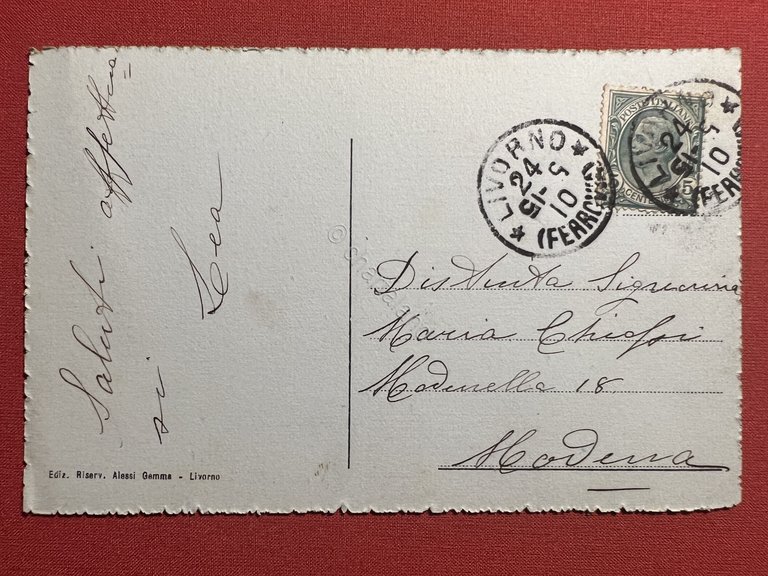 Saluti affettuo
si
Lea
Distinta Signorina
Maria Chiossi
Modonella 18
Modena
Ediz. Riserv. Alessi Gemma - Livorno
LIVORNO
24
5
15
10
(FERROVIA)
POSTE ITALIANE
CENT 5
LIVORNO
24
5
15
10
(FERROVIA)